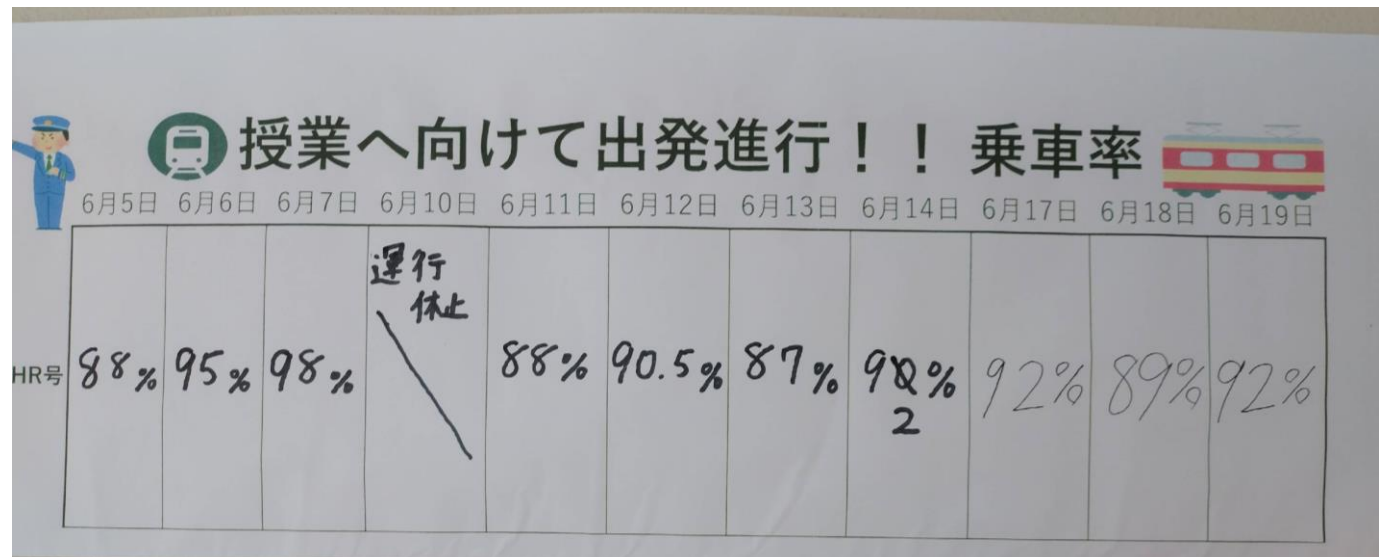 授業へ向けて出発進行！！ 乗車率
6月5日 6月6日 6月7日 6月10日 6月11日 6月12日 6月13日 6月14日 6月17日 6月18日 6月19日
運行
休止
HR号 88% 95% 98% 88% 90.5% 87% 9% 92% 89% 92%
2